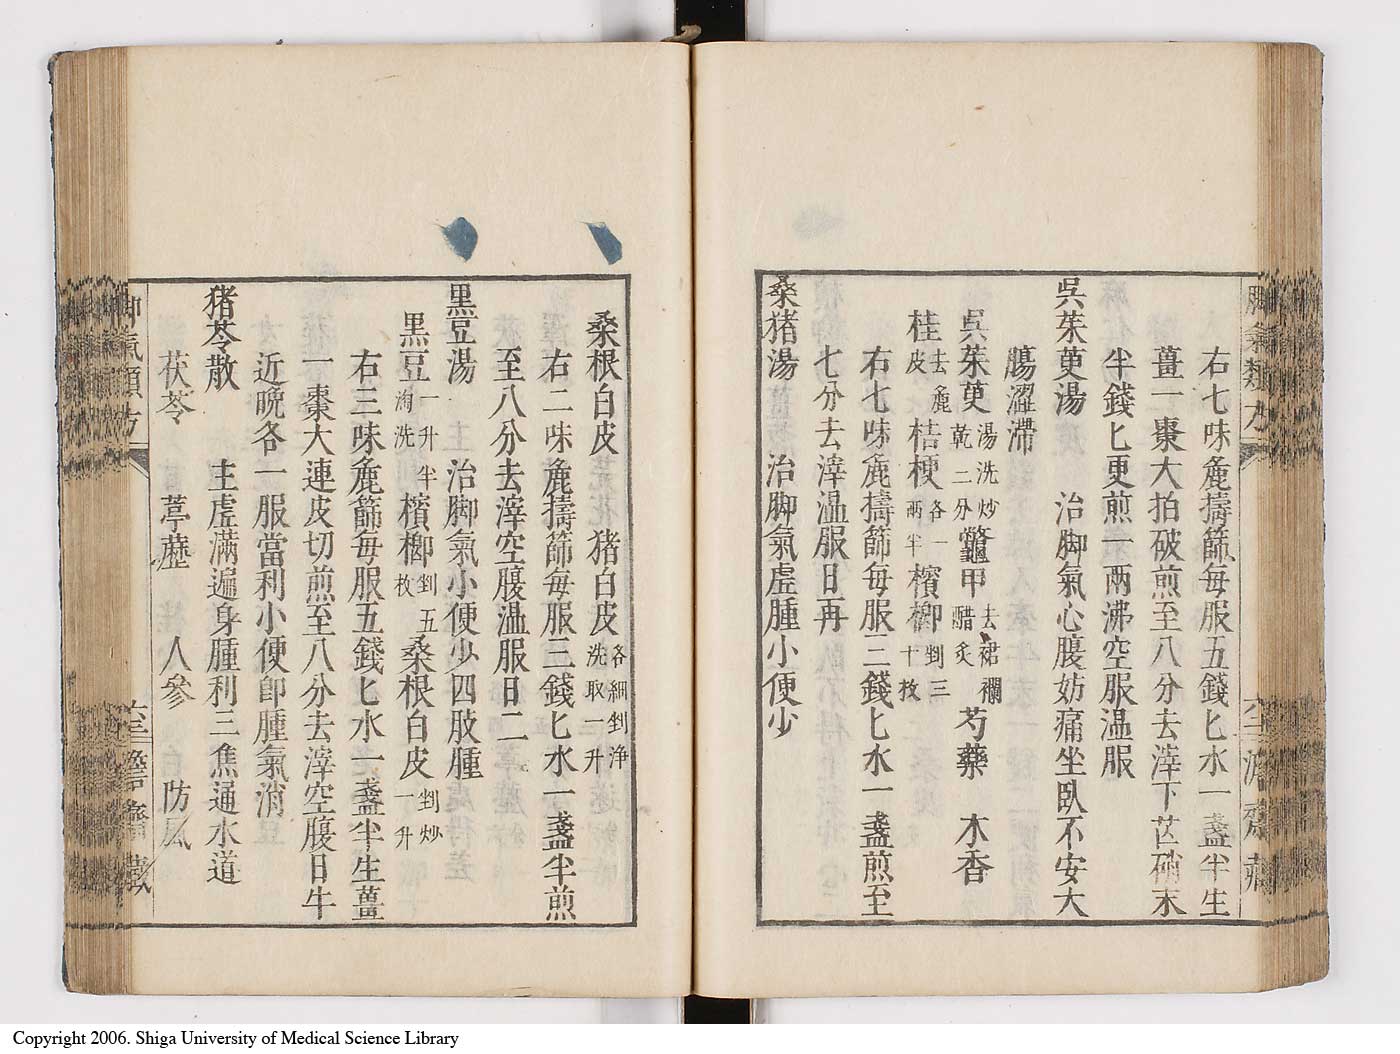 右七味麁擣篩每服五錢匕水一盞半生
薑一棗大拍破煎至八分去滓下芒硝末
半錢匕更煎一兩沸空服溫服
吳茱萸湯 治脚氣心腹妨痛坐臥不安大
腸澀滯
吳茱萸湯洗炒乾二分 鼈甲去裙襴醋炙 芍藥 木香
桂去麁皮 桔梗各一兩半 檳榔剉三十枚
右七味麁擣篩每服三錢匕水一盞煎至
七分去滓溫服日再
桑猪湯 治脚氣虛腫小便少
桑根白皮 猪白皮各細剉浄洗取二升
右二味麁擣篩每服三錢匕水一盞半煎
至八分去滓空腹溫服日二
黑豆湯 治脚氣小便少四肢腫
黑豆一升半淘洗 檳榔剉五枚 桑根白皮剉炒一升
右三味麁篩每服五錢匕水一盞半生薑
一棗大連皮切煎至八分去滓空腹日午
近晚各一服當利小便即腫氣消
猪苓散 主虛滿遍身腫利三焦通水道
茯苓 葶藶 人參 防風
脚氣類方
Copyright 2006. Shiga University of Medical Science Library